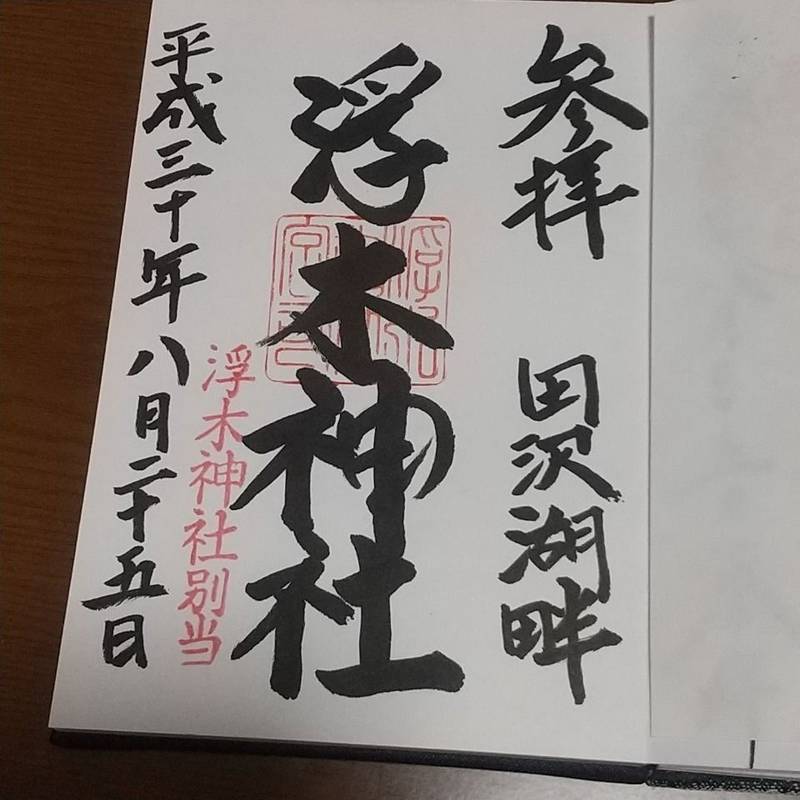 参拝 田沢湖畔
浮木神社
浮木神社別当
平成三十年八月二十五日